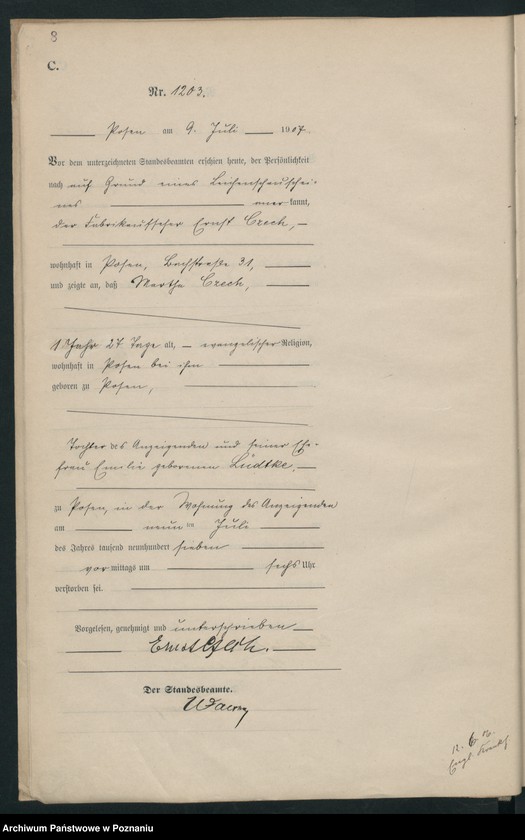 8
C.
Nr. 1203.
Posen am 9. Juli 1907.
Vor dem unterzeichneten Standesbeamten erschien heute, der Persönlichkeit
nach auf Grund eines Leichenschauschei-
nes anerkannt,
der Fabrikaufseher Ernst Czech,
wohnhaft in Posen, Bachstraße 31,
und zeigte an, daß Martha Czech,
1 Jahr 27 Tage alt, evangelischer Religion,
wohnhaft in Posen bei ihm
geboren zu Posen,
Tochter des Anzeigenden und seiner Ehe-
frau Emilie geborenen Lüdtke,
zu Posen, in der Wohnung des Anzeigenden
am neunten Juli
des Jahres tausend neunhundert sieben
vormittags um sechs Uhr
verstorben sei.
Vorgelesen, genehmigt und unterschrieben
Ernst Czech.
Der Standesbeamte.
Archiwum Państwowe w Poznaniu